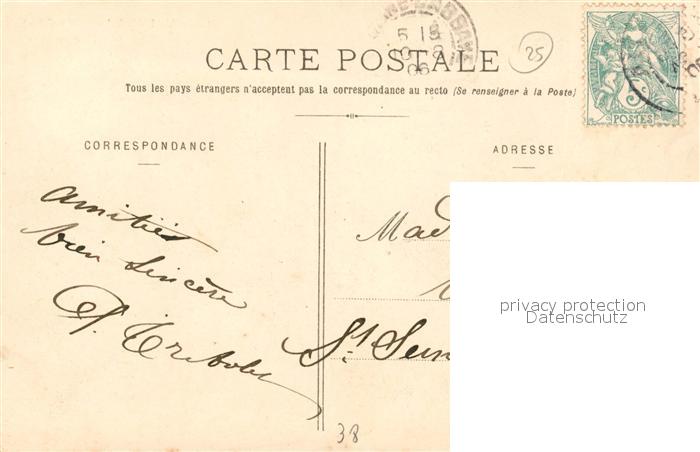 CARTE POSTALE
25
Tous les pays étrangers n'acceptent pas la correspondance au recto (Se renseigner à la Poste)
5 POSTES
CORRESPONDANCE
ADRESSE
amitiés
bien sincère
Mad
St Sein
privacy protection
Datenschutz
38